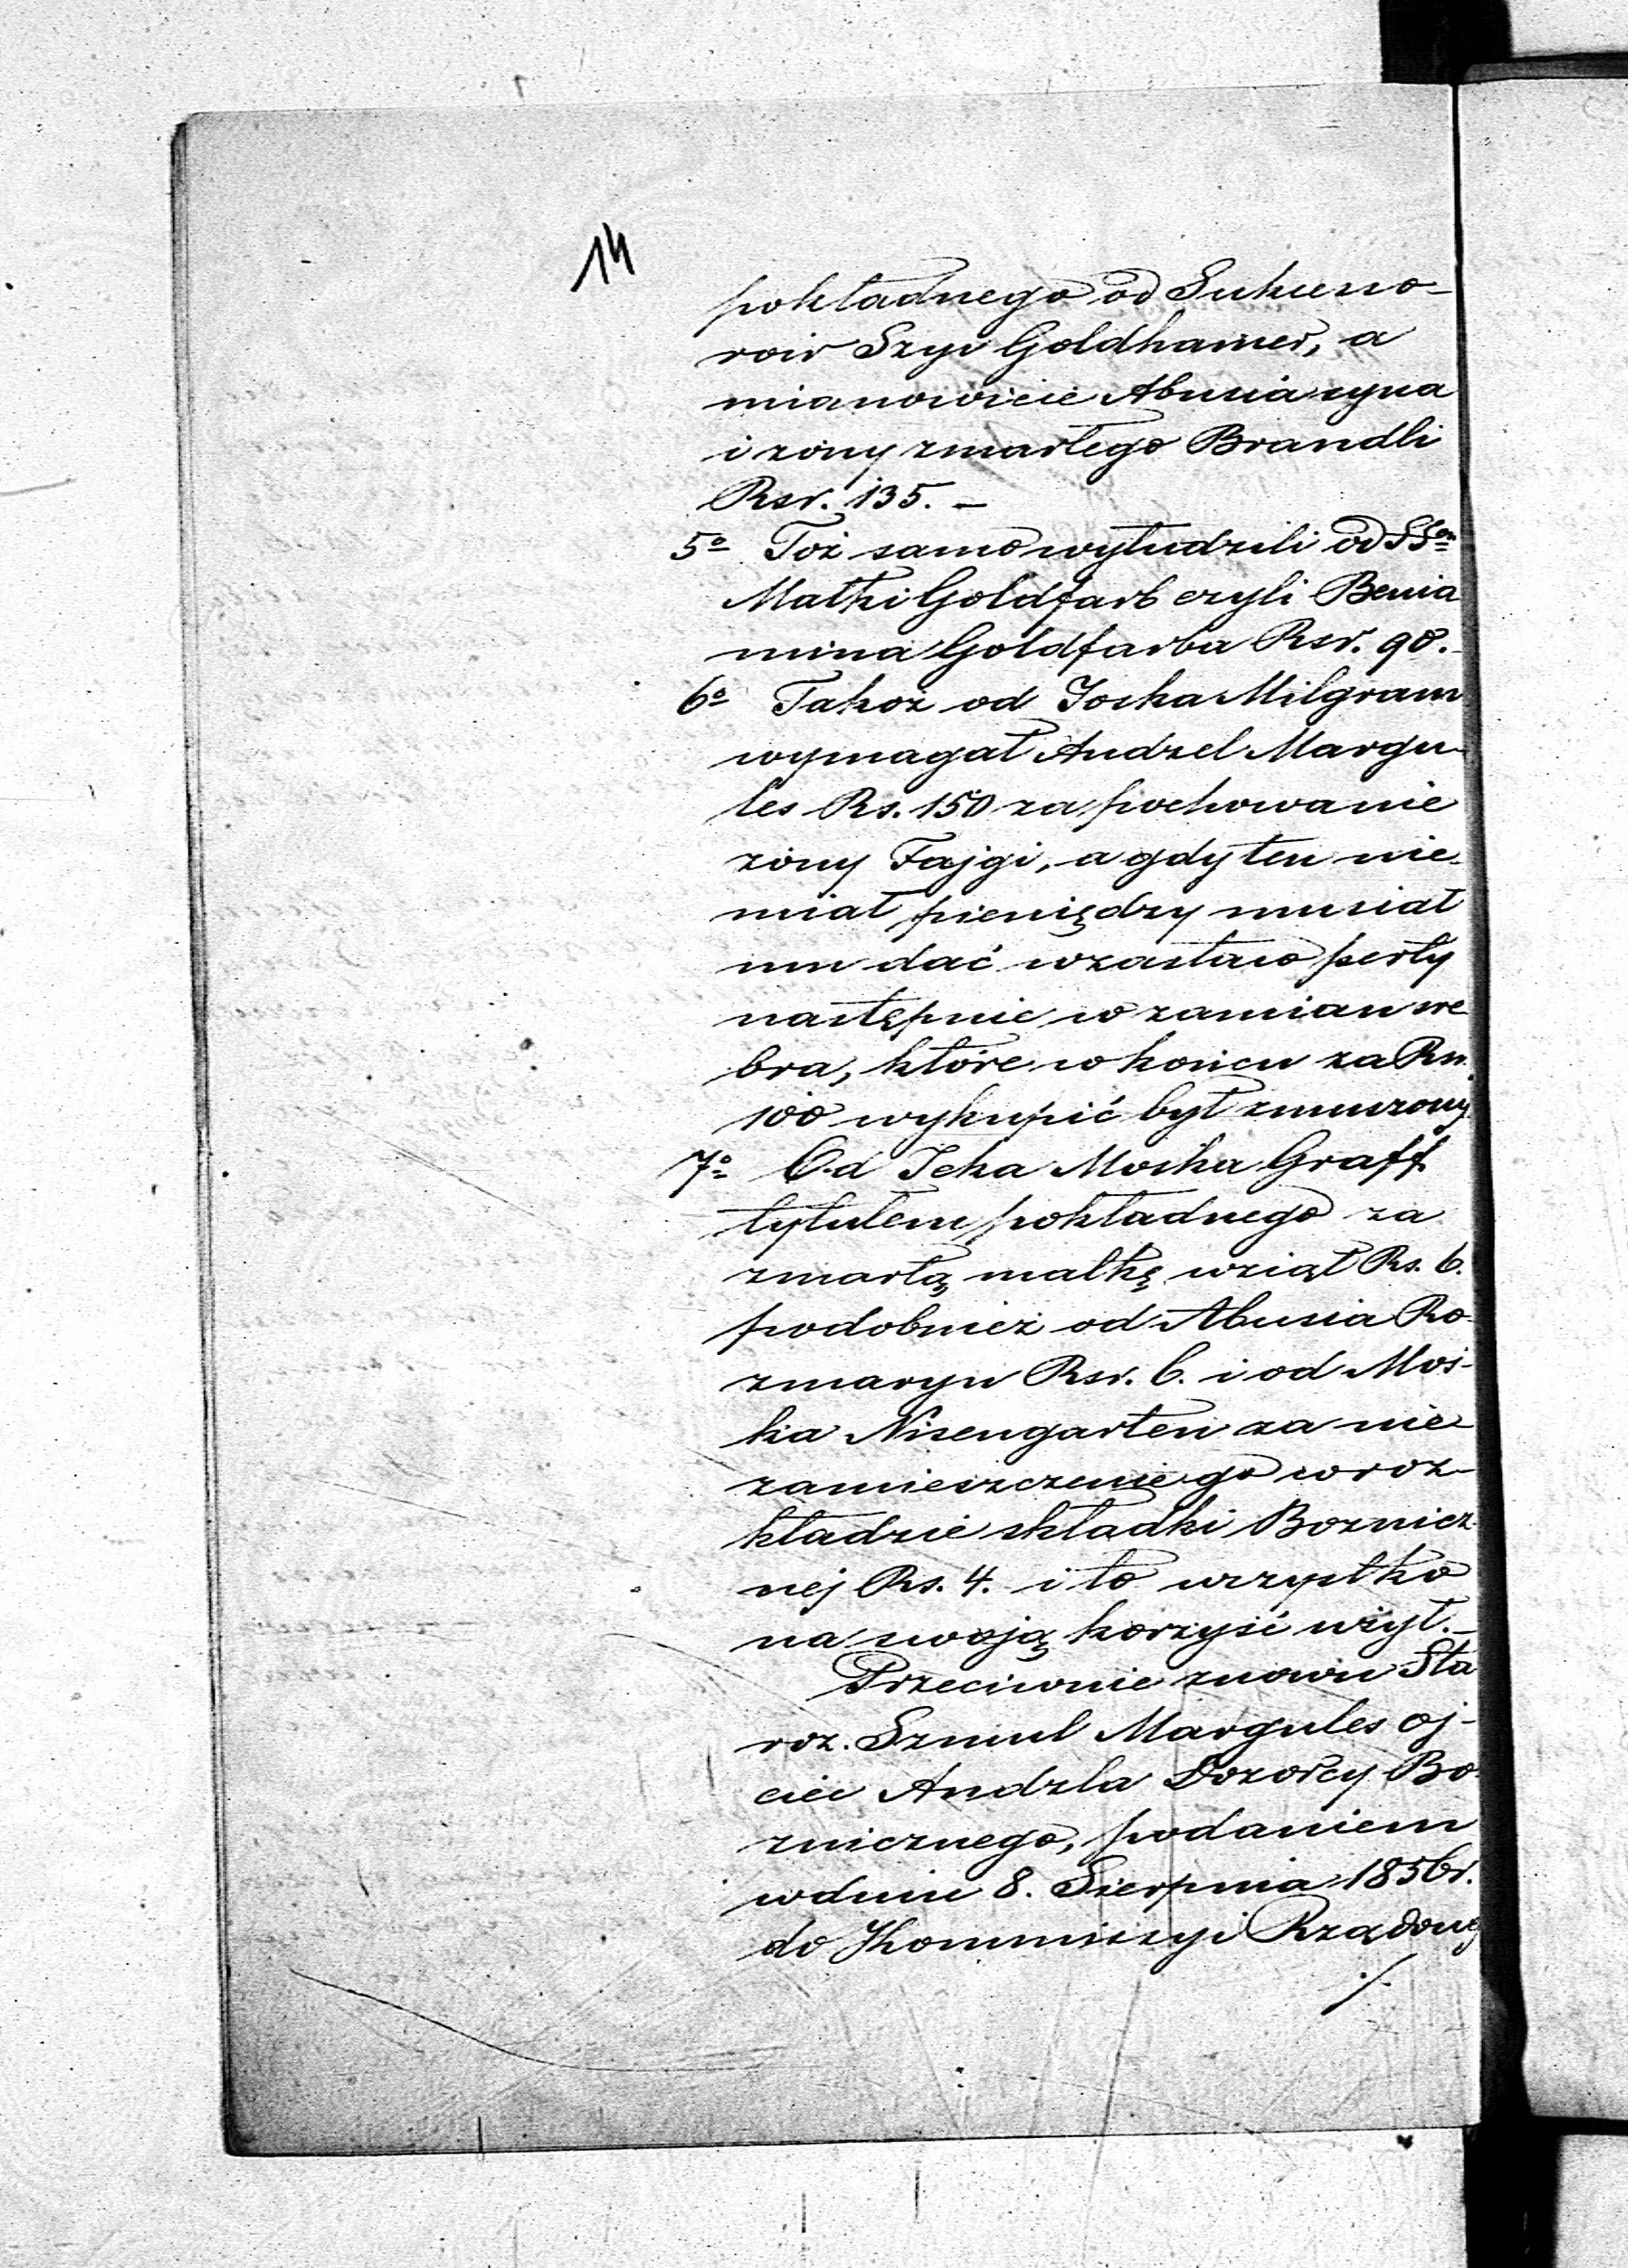 14
pokładnego od Sukceso-
rów Szyi Goldhamer, a
mianowicie Abusia syna
i żony zmarłego Brandli
Rsr. 135. –
5º Toż samo wyłudzili od SSów
Matki Goldfarb czyli Benia
mina Goldfarba Rsr. 90. –
6º Takoż od Joska Milgram
wymagał Andzel Margu-
les Rs. 150 za pochowanie
żony Fajgi, a gdy ten nie-
miał pieniędzy musiał
mu dać wzastaw perły
następnie w zamian sre
bra, które w końcu za Rsr.
100 wykupić był zmuszony
7º Od Icka Moska Graff
tytułem pokładnego za
zmarłą matkę wziął Rs. 6.
podobnież od Abusia Ro-
zmaryn Rsr. 6. i od Moś-
ka Nisengarten za nie
zamieszczenie go w roz-
kładzie składki Boznicz-
nej Rs. 4. i to wszystko
na swoją korzyść użył. –
Przeciwnie znowu Sta
roz. Szmul Margules oj-
ciec Andzla Dozorcy Bo-
znicznego, podaniem
wdniu 8. Sierpnia 1856 r.
do Kommissyi Rządowej
./.